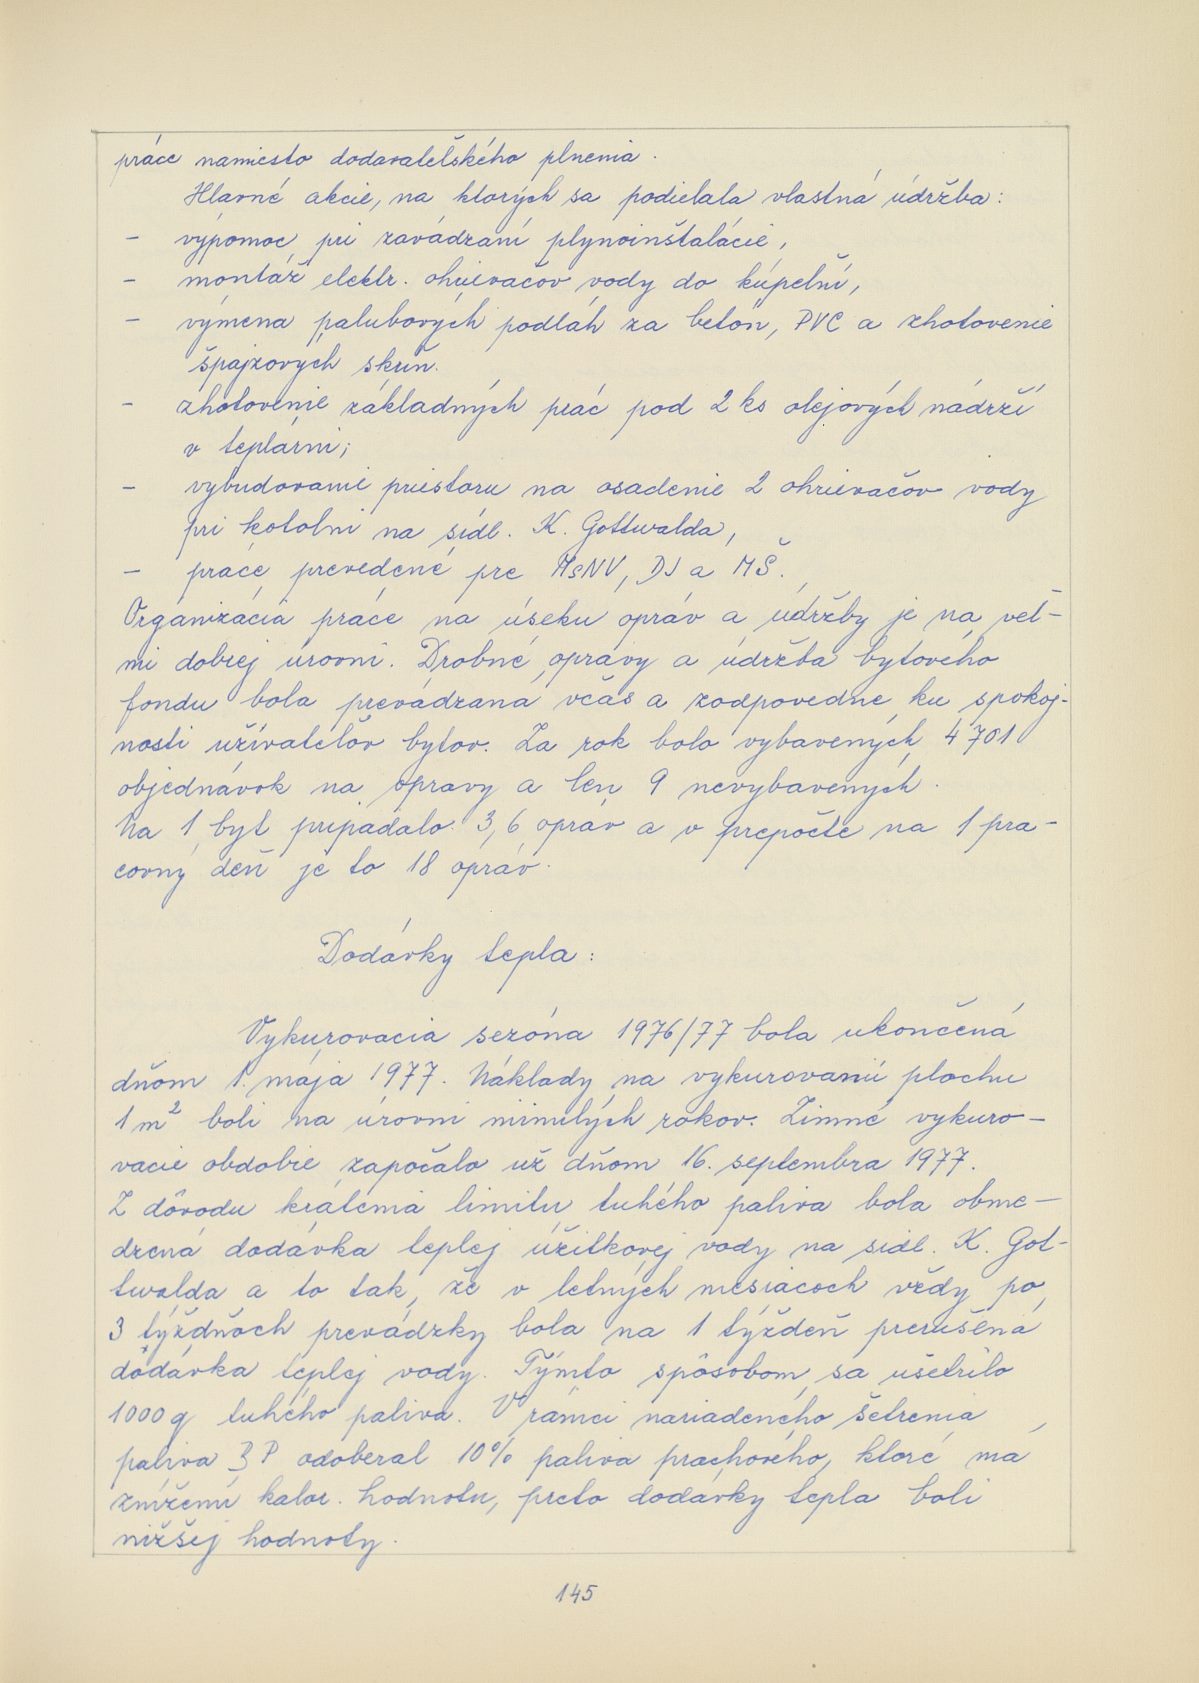 práce namiesto dodavateľského plnenia.
Hlavné akcie, na ktorých sa podielala vlastná údržba:
- výpomoc pri zavádzaní plynoinštalácie,
- montáž elektr. ohrievačov vody do kúpelní,
- výmena palubových podláh za betón, PVC a zhotovenie
špajzových skríň.
- zhotovenie základných prác pod 2 ks olejových nádrží
v teplárni;
- vybudovanie priestoru na osadenie 2 ohrievačov vody
pri kotolni na sídl. K. Gottwalda,
- práce prevedené pre MsNV, DJ a MŠ.
Organizácia práce na úseku opráv a údržby je na veľ-
mi dobrej úrovni. Drobné opravy a údržba bytového
fondu bola prevádzaná včas a zodpovedne ku spokoj-
nosti užívateľov bytov. Za rok bolo vybavených 4 701
objednávok na opravy a len 9 nevybavených.
Na 1 byt pripadalo 3,6 opráv a v prepočte na 1 pra-
covný deň je to 18 opráv.
Dodávky tepla:
Vykurovacia sezóna 1976/77 bola ukončená
dňom 1. mája 1977. Náklady na vykurovaniú plochu
1 m² boli na úrovni minulých rokov. Zimné vykuro-
vacie obdobie započalo už dňom 16. septembra 1977.
Z dôvodu krátenia limitu tuhého paliva bola obme-
dzená dodávka teplej úžitkovej vody na sídl. K. Got-
twalda a to tak, že v letných mesiacoch vždy po
3 týždňoch prevádzky bola na 1 týždeň prerušená
dodávka teplej vody. Týmto spôsobom sa ušetrilo
1000 q tuhého paliva. V rámci nariadeného šetrenia
paliva BP odoberal 10% paliva prachového, ktoré má
zníženú kalor. hodnotu, preto dodávky tepla boli
nižšej hodnoty.
145